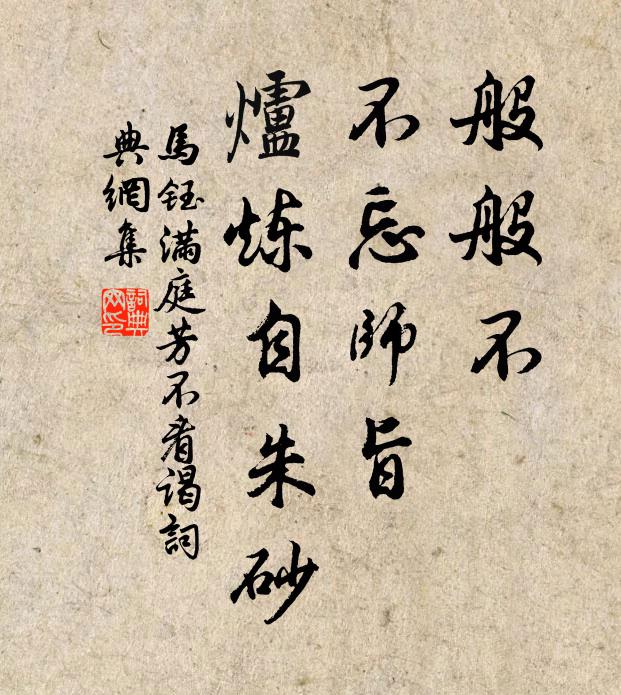 般般不
不忘師旨
爐炼自朱砂
馬鈺满庭芳不看谒詞
典網集
詞典網印